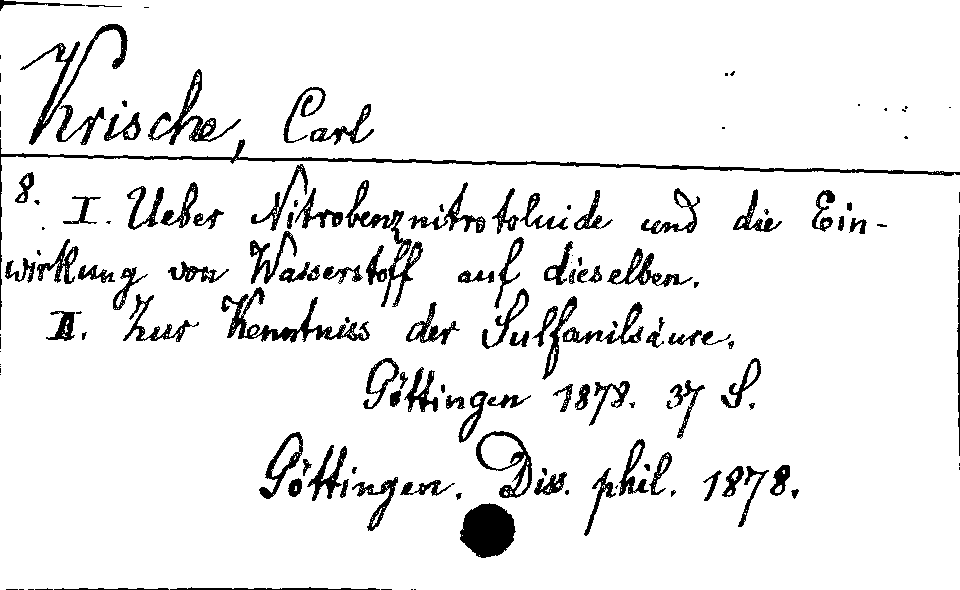 Krische, Carl
8. I. Ueber Nitrobenznitrotoluide und die Ein-
wirkung von Wasserstoff auf dieselben.
II. Zur Kenntniss der Sulfanilsäure.
Göttingen 1878. 37 S.
Göttingen. Diss. phil. 1878.